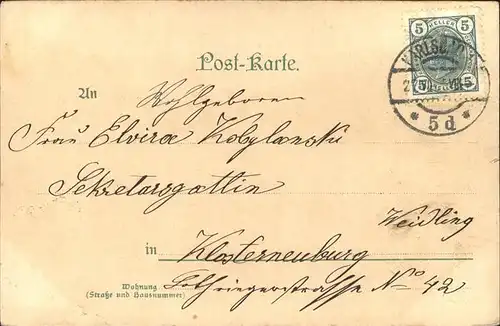 5 HELLER 5
5 5
KARLSBAD
* 5d *
Post-Karte.
An Wohlgeboren
Frau Elvira Kobylanski
Sekretarsgattin
Weidling
in Klosterneuburg
Wohnung
(Straße und Hausnummer)
Lothringerstrasse No 42